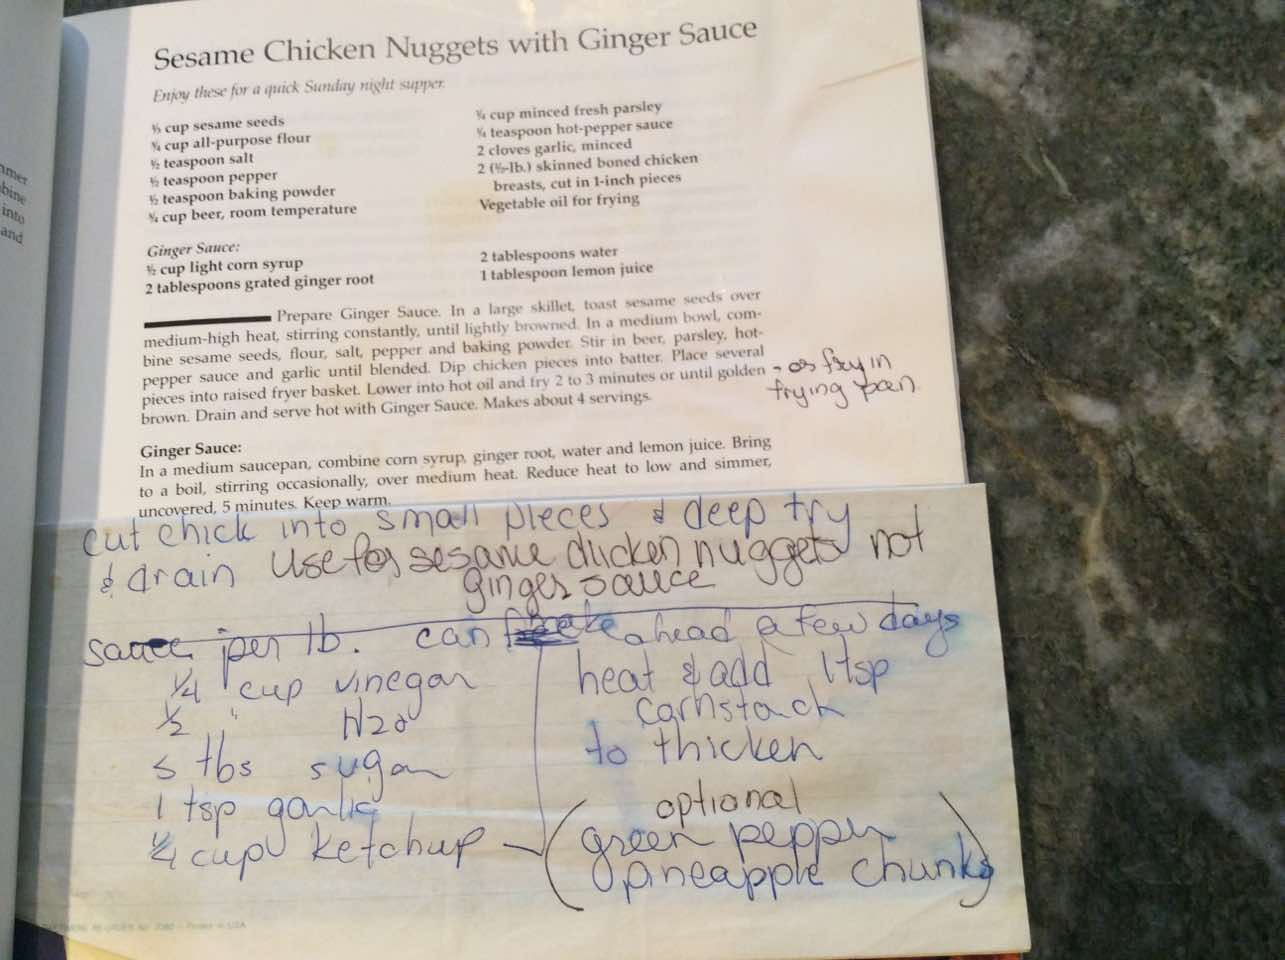 mmer
bine
into
and
Sesame Chicken Nuggets with Ginger Sauce
Enjoy these for a quick Sunday night supper.
⅓ cup sesame seeds
¾ cup all-purpose flour
½ teaspoon salt
½ teaspoon pepper
½ teaspoon baking powder
¾ cup beer, room temperature
¼ cup minced fresh parsley
¼ teaspoon hot-pepper sauce
2 cloves garlic, minced
2 (½-lb.) skinned boned chicken
breasts, cut in 1-inch pieces
Vegetable oil for frying
Ginger Sauce:
½ cup light corn syrup
2 tablespoons grated ginger root
2 tablespoons water
1 tablespoon lemon juice
Prepare Ginger Sauce. In a large skillet, toast sesame seeds over
medium-high heat, stirring constantly, until lightly browned. In a medium bowl, com-
bine sesame seeds, flour, salt, pepper and baking powder. Stir in beer, parsley, hot-
pepper sauce and garlic until blended. Dip chicken pieces into batter. Place several
pieces into raised fryer basket. Lower into hot oil and fry 2 to 3 minutes or until golden
brown. Drain and serve hot with Ginger Sauce. Makes about 4 servings.
- or fry in
frying pan
Ginger Sauce:
In a medium saucepan, combine corn syrup, ginger root, water and lemon juice. Bring
to a boil, stirring occasionally, over medium heat. Reduce heat to low and simmer,
uncovered, 5 minutes. Keep warm.
cut chick into small pieces & deep fry
& drain Use for sesame chicken nuggets not
ginger sauce
sauce per lb. can make ahead a few days
¼ cup vinegar
½ " H2O
5 tbs sugar
1 tsp garlic
¼ cup ketchup
heat & add 1 tsp
cornstarch
to thicken
(optional
green pepper
pineapple chunks)